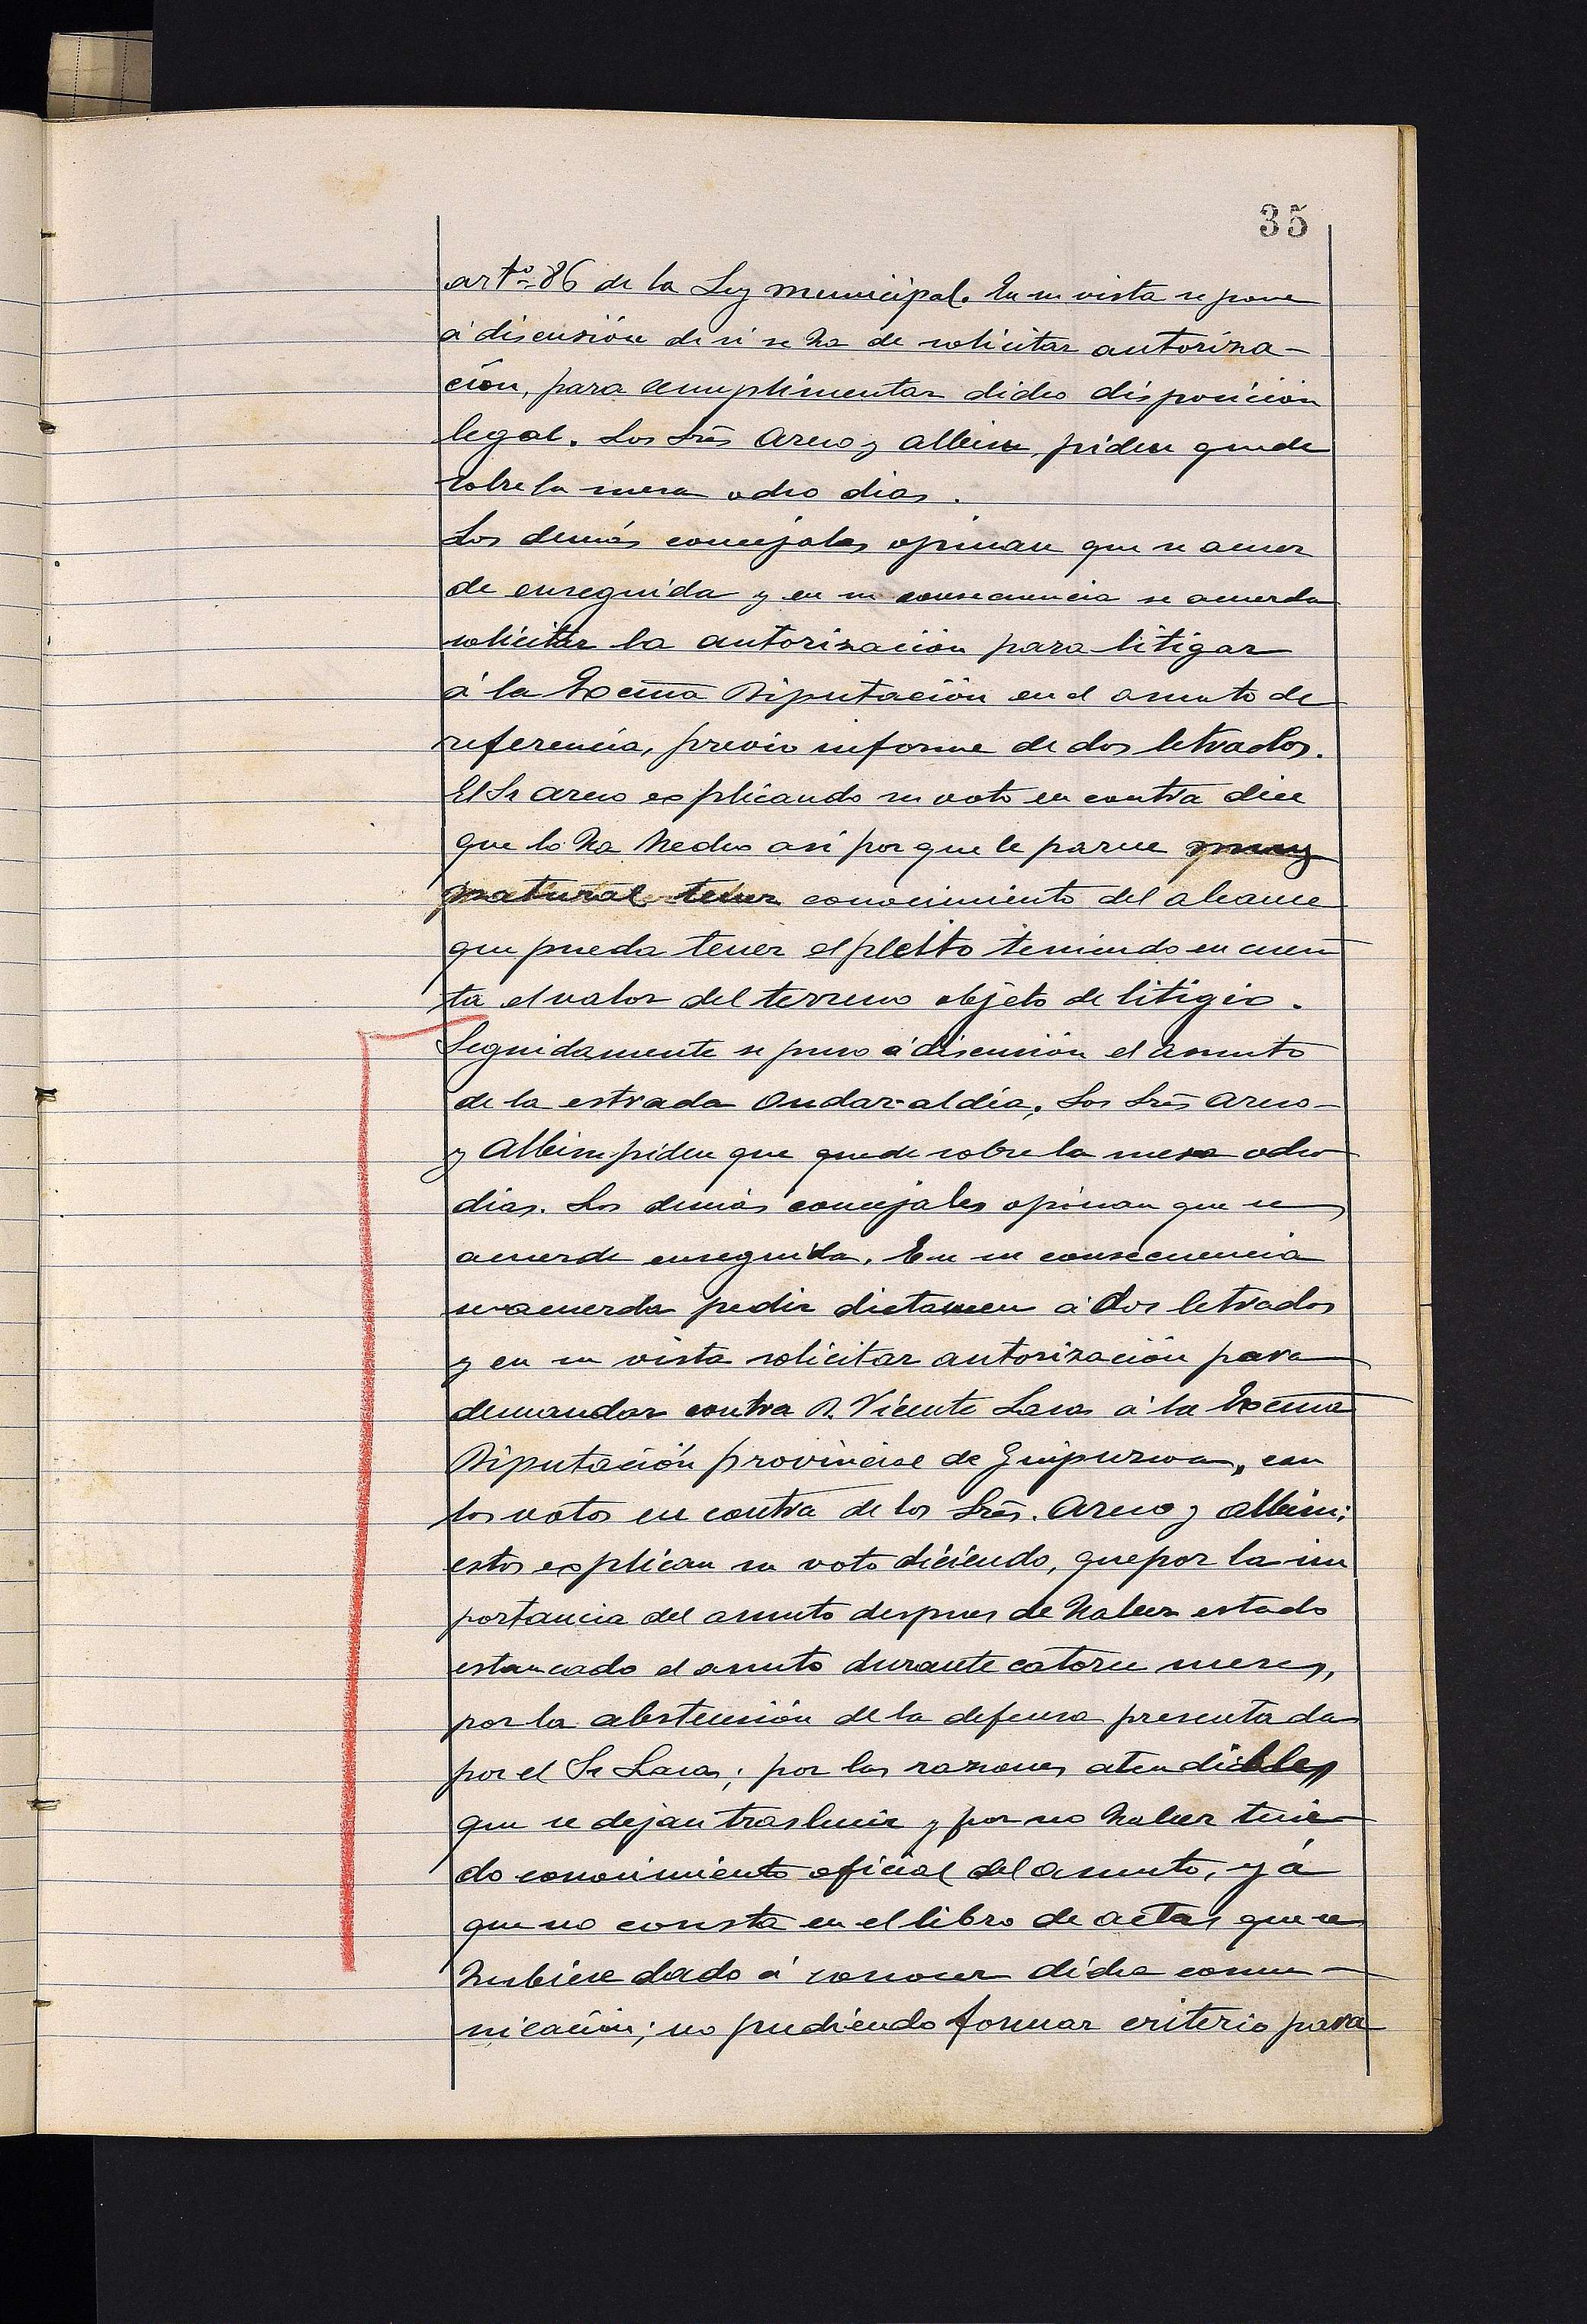 35
artº 86 de la Ley municipal. En su vista se pone
á discusión de si se ha de solicitar autoriza-
ción, para cumplimentar dicho disposición
legal. Los Srēs Areso y Albisu, piden quede
sobre la mesa ocho dias.
Los demás concejales opinan que se acuer
de enseguida y en su consecuencia se acuerda
solicitar la autorización para litigar
á la Excma Diputación en el asunto de
referencia, previo informe de dos letrados.
El Sr Areso explicando su voto en contra dice
que lo ha hecho asi por que le parece muy
natural tener conocimiento del alcance
que pueda tener el pleito teniendo en cuen
ta el valor del terreno objeto de litigio.
Seguidamente se puso á discusión el asunto
de la estrada Ondar-aldia. Los Srēs Areso
y Albisu piden que quede sobre la mesa ocho
dias. Los demás concejales opinan que se
acuerde enseguida. En su consecuencia
se acuerda pedir dictamen á dos letrados
y en su vista solicitar autorización para
demandar contra D. Vicente Lasa á la Excma
Diputación provincial de Guipuzcoa, con
los votos en contra de los Srēs. Areso y Albisu;
estos explican su voto diciendo, que por la im
portancia del asunto despues de haber estado
estancado el asunto durante catorce meses,
por la abstención de la defensa presentada
por el Sr Lasa; por las razones atendibles
que se dejan traslucir y por no haber teni
do conocimiento oficial del asunto, yá
que no consta en el libro de actas que se
hubiese dado á conocer dicha comu-
nicación; no pudiendo formar criterio para